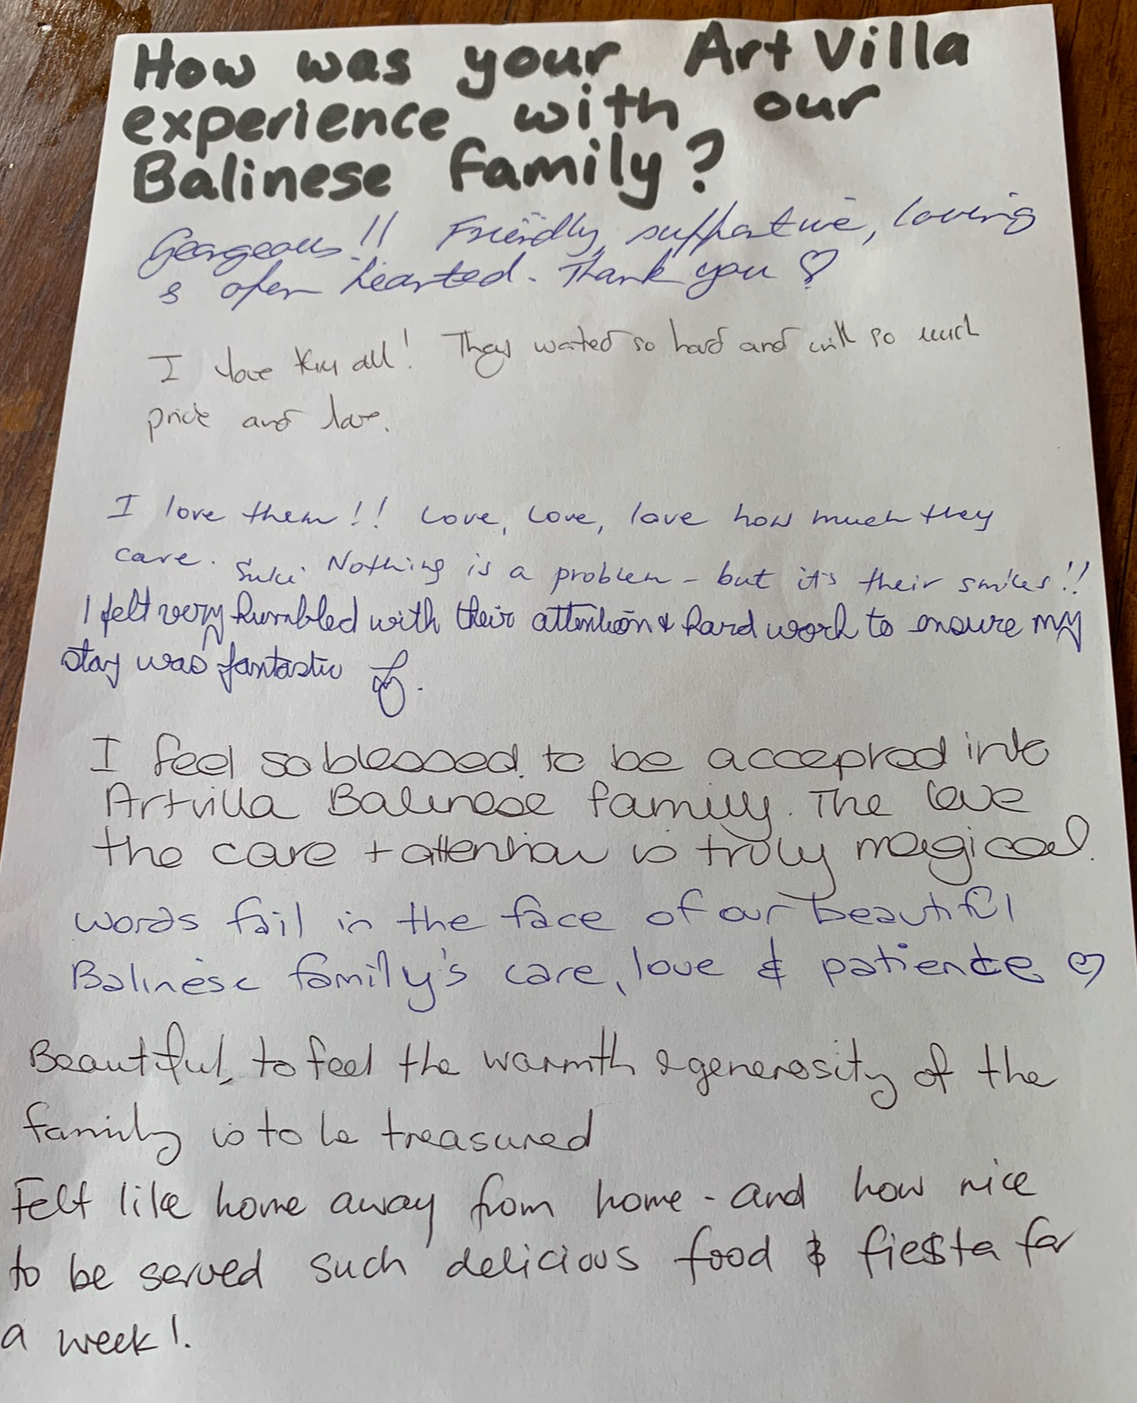 How was your Art Villa
experience with our
Balinese family?
Gorgeous!! Friendly, supportive, loving
& open hearted. Thank you ♡
I love them all! They worked so hard and with so much
pride and love.
I love them!! Love, Love, love how much they
care. Suki. Nothing is a problem - but it's their smiles!!
I felt very humbled with their attention & hard work to ensure my
stay was fantastic
I feel so blessed to be accepted into
Artvilla Balinese family. The love
the care + attention is truly magical.
words fail in the face of our beautiful
Balinese family's care, love & patience ♡
Beautiful, to feel the warmth & generosity of the
family is to be treasured
Felt like home away from home - and how nice
to be served such delicious food & fiesta for
a week!.